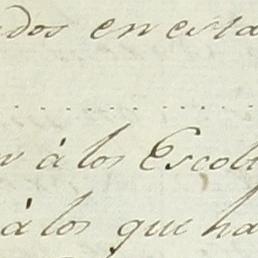 ados en esta
. . . . . . . . . . . . .
n à los Escol
à los que ha